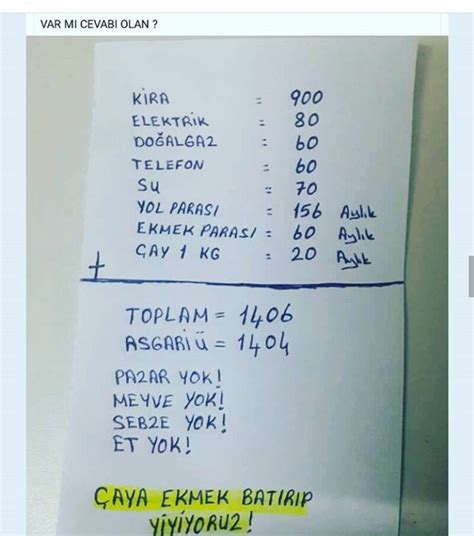 VAR MI CEVABI OLAN ?
KİRA = 900
ELEKTRİK = 80
DOĞALGAZ = 60
TELEFON = 60
SU = 70
YOL PARASI = 156 Aylık
EKMEK PARASI = 60 Aylık
ÇAY 1 KG = 20 Aylık
+
TOPLAM = 1406
ASGARİ Ü = 1404
PAZAR YOK!
MEYVE YOK!
SEBZE YOK!
ET YOK!
ÇAYA EKMEK BATIRIP
YİYİYORUZ!